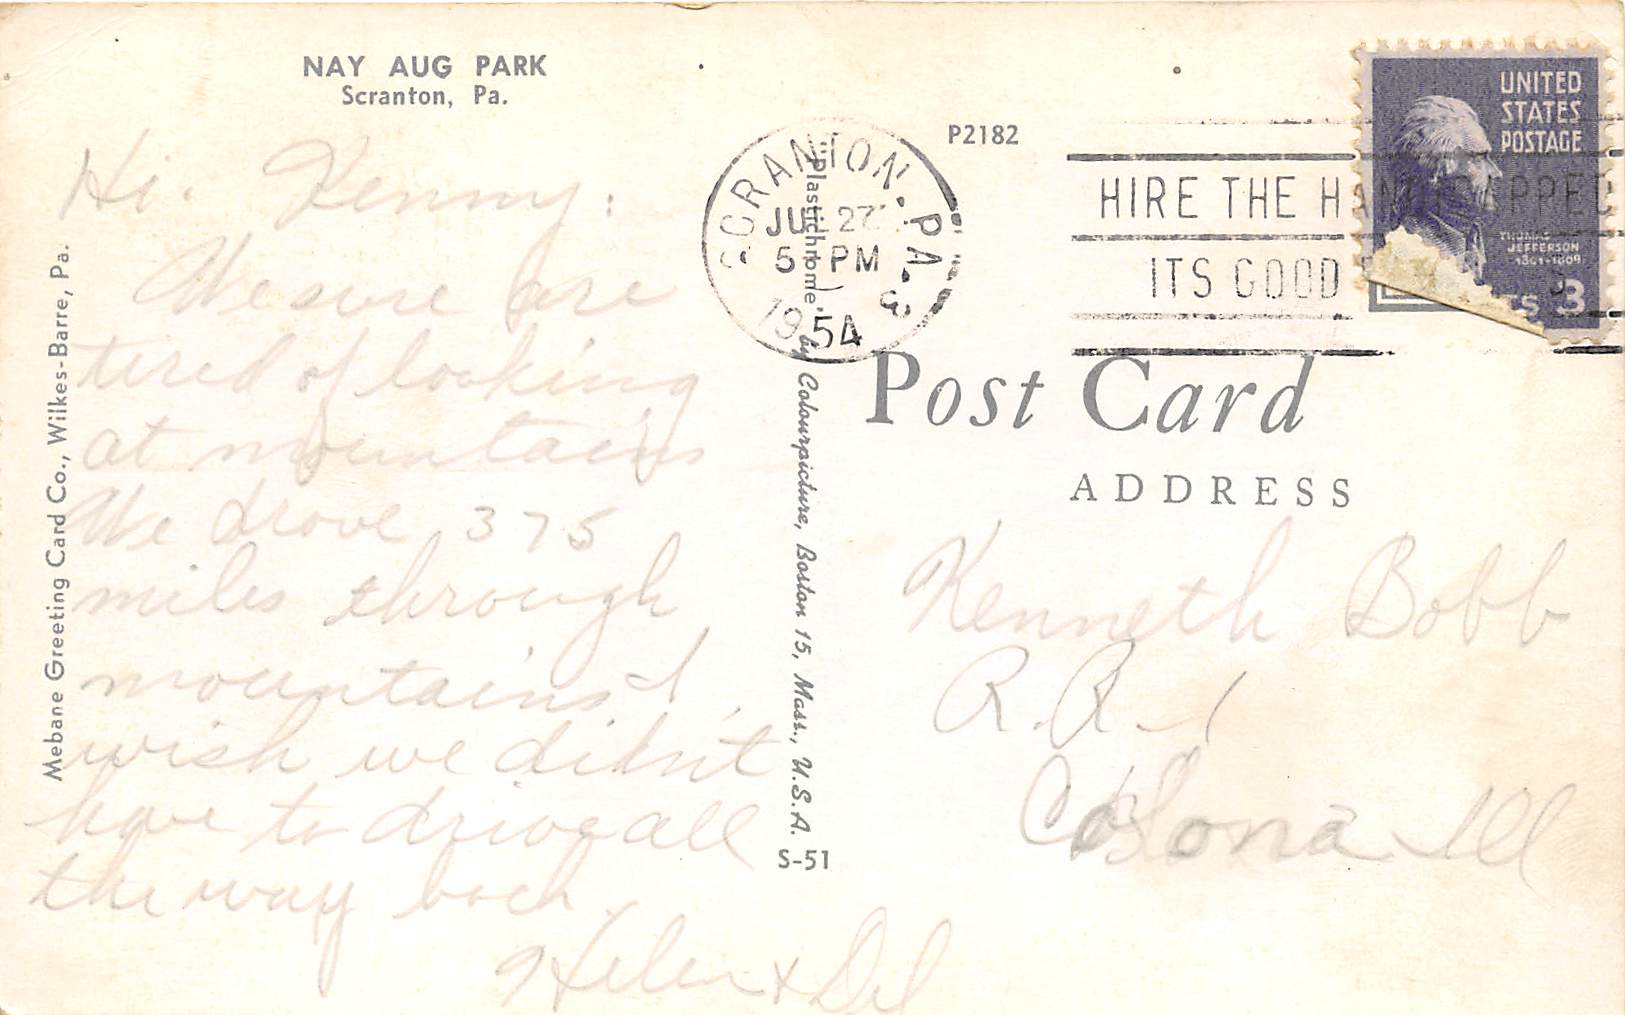 NAY AUG PARK
Scranton, Pa.
Hi. Kenny:
We sure are
tired of looking
at mountains
We drove 375
miles through
mountains I
wish we didn't
have to drive all
the way back.
Helen & Del
Mebane Greeting Card Co., Wilkes-Barre, Pa.
"Plastichrome" by Colourpicture, Boston 15, Mass., U.S.A.
S-51
P2182
SCRANTON, PA. 3
JUL 27
5 PM
1954
HIRE THE HANDICAPPED
ITS GOOD
UNITED
STATES
POSTAGE
THOMAS
JEFFERSON
1801-1809
3
Post Card
ADDRESS
Kenneth Bobb
R.R-1
Colona Ill